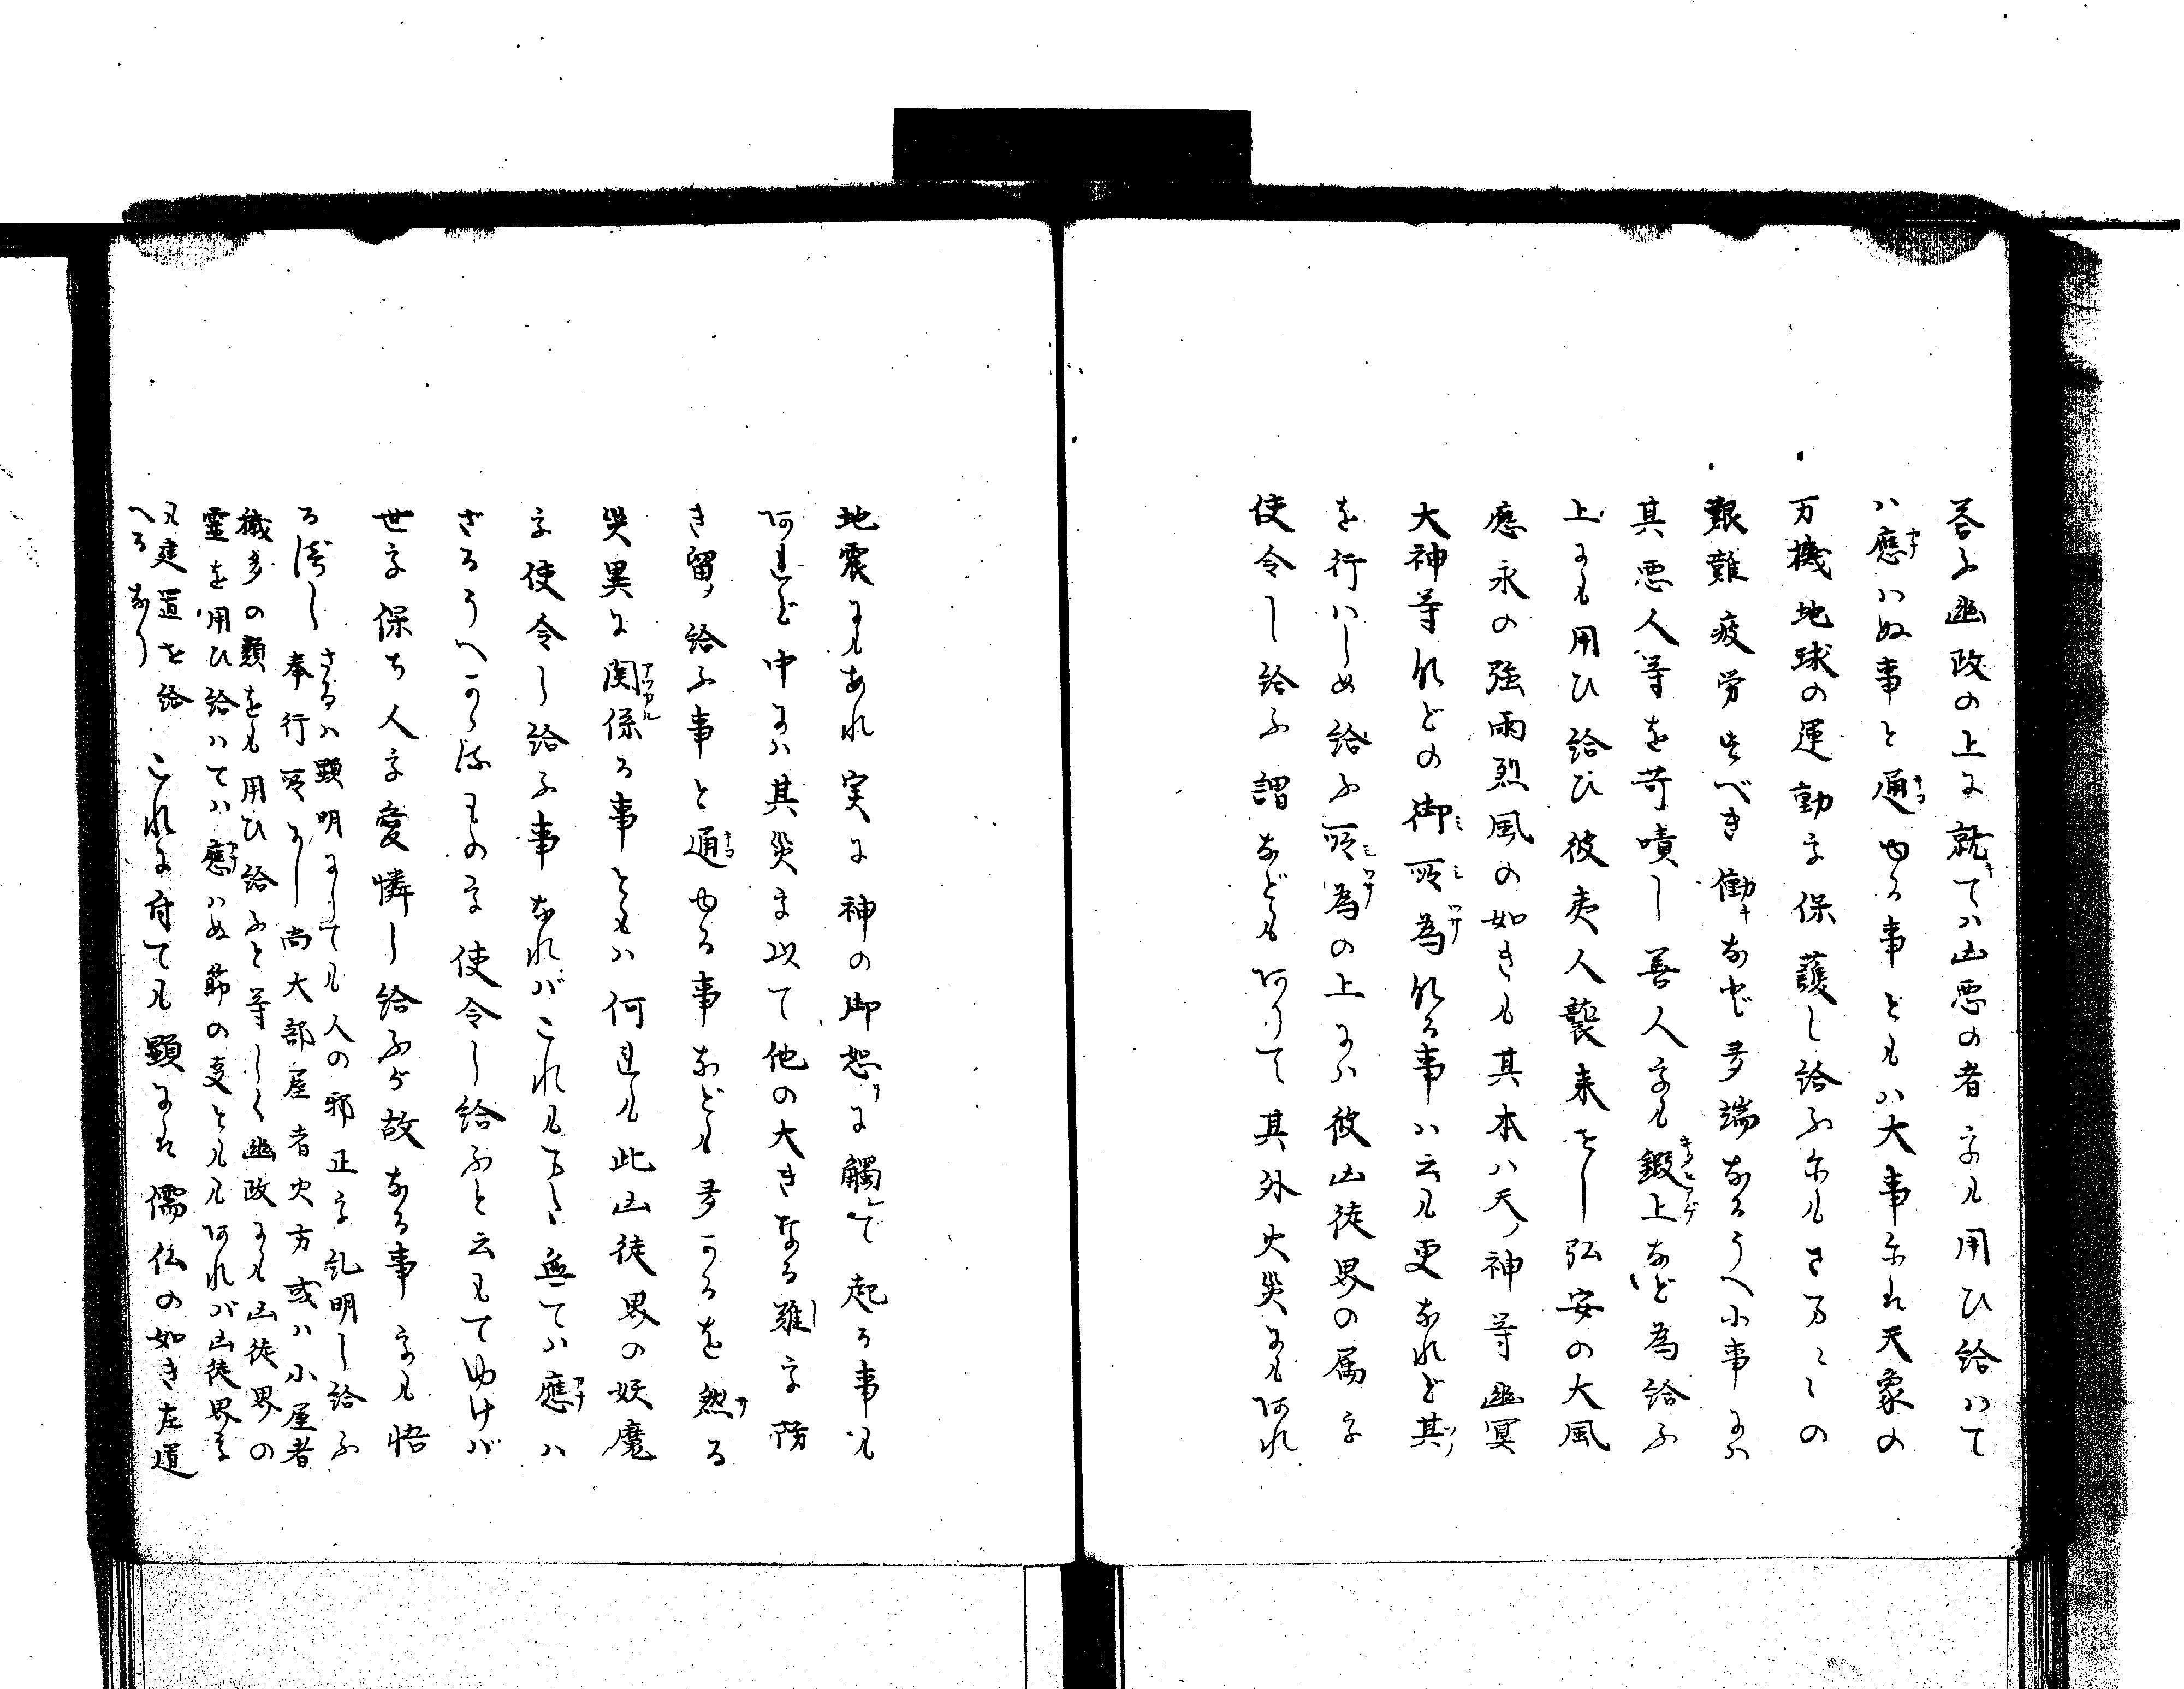 答ふ幽政の上に就ては凶悪の者をも用ひ給はて
ハ應ハぬ事と通ゆる事ともハ大事にハ天象の
万機地球の運動を保護し給ふにもさま〻〻の
艱難疲労すべき働きなど多端なるうへ小事にハ
其悪人等を苛責し善人をも鍛上など為給ふ
上にも用ひ給ひ彼夷人襲来せし弘安の大風
應永の強雨烈風の如きも其本ハ天ノ神等幽冥
大神等などの御所為なる事ハ云も更なれど其
を行ハしめ給ふ所為の上にハ彼凶徒界の属を
使令し給ふ謂なども有りて其外火災にも有れ
地震にもあれ実に神の御怒りに觸れて起る事も
有れど中にハ其災を以て他の大きなる難を防
き留メ給ふ事と通ゆる事なども多かるを然る
災異に関係る事ともハ何れも此凶徒界の妖魔
を使令し給ふ事なれバこれも万々無てハ應ハ
ざるうへからぬものを使令し給ふと云もてゆけバ
世を保ち人を愛憐し給ふが故なる事をも悟
るべし さるハ顕明にしても人の邪正を糺明し給ふ
奉行所にし尚大部屋者火方或ハ小屋者
穢多の類をも用ひ給ふと等しく幽政にも凶徒界の
霊を用ひ給ハてハ應ハぬ節の支ともも有れバ凶徒界を
も建置せ給
へるなり これに付ても顕にハ儒仏の如き左道